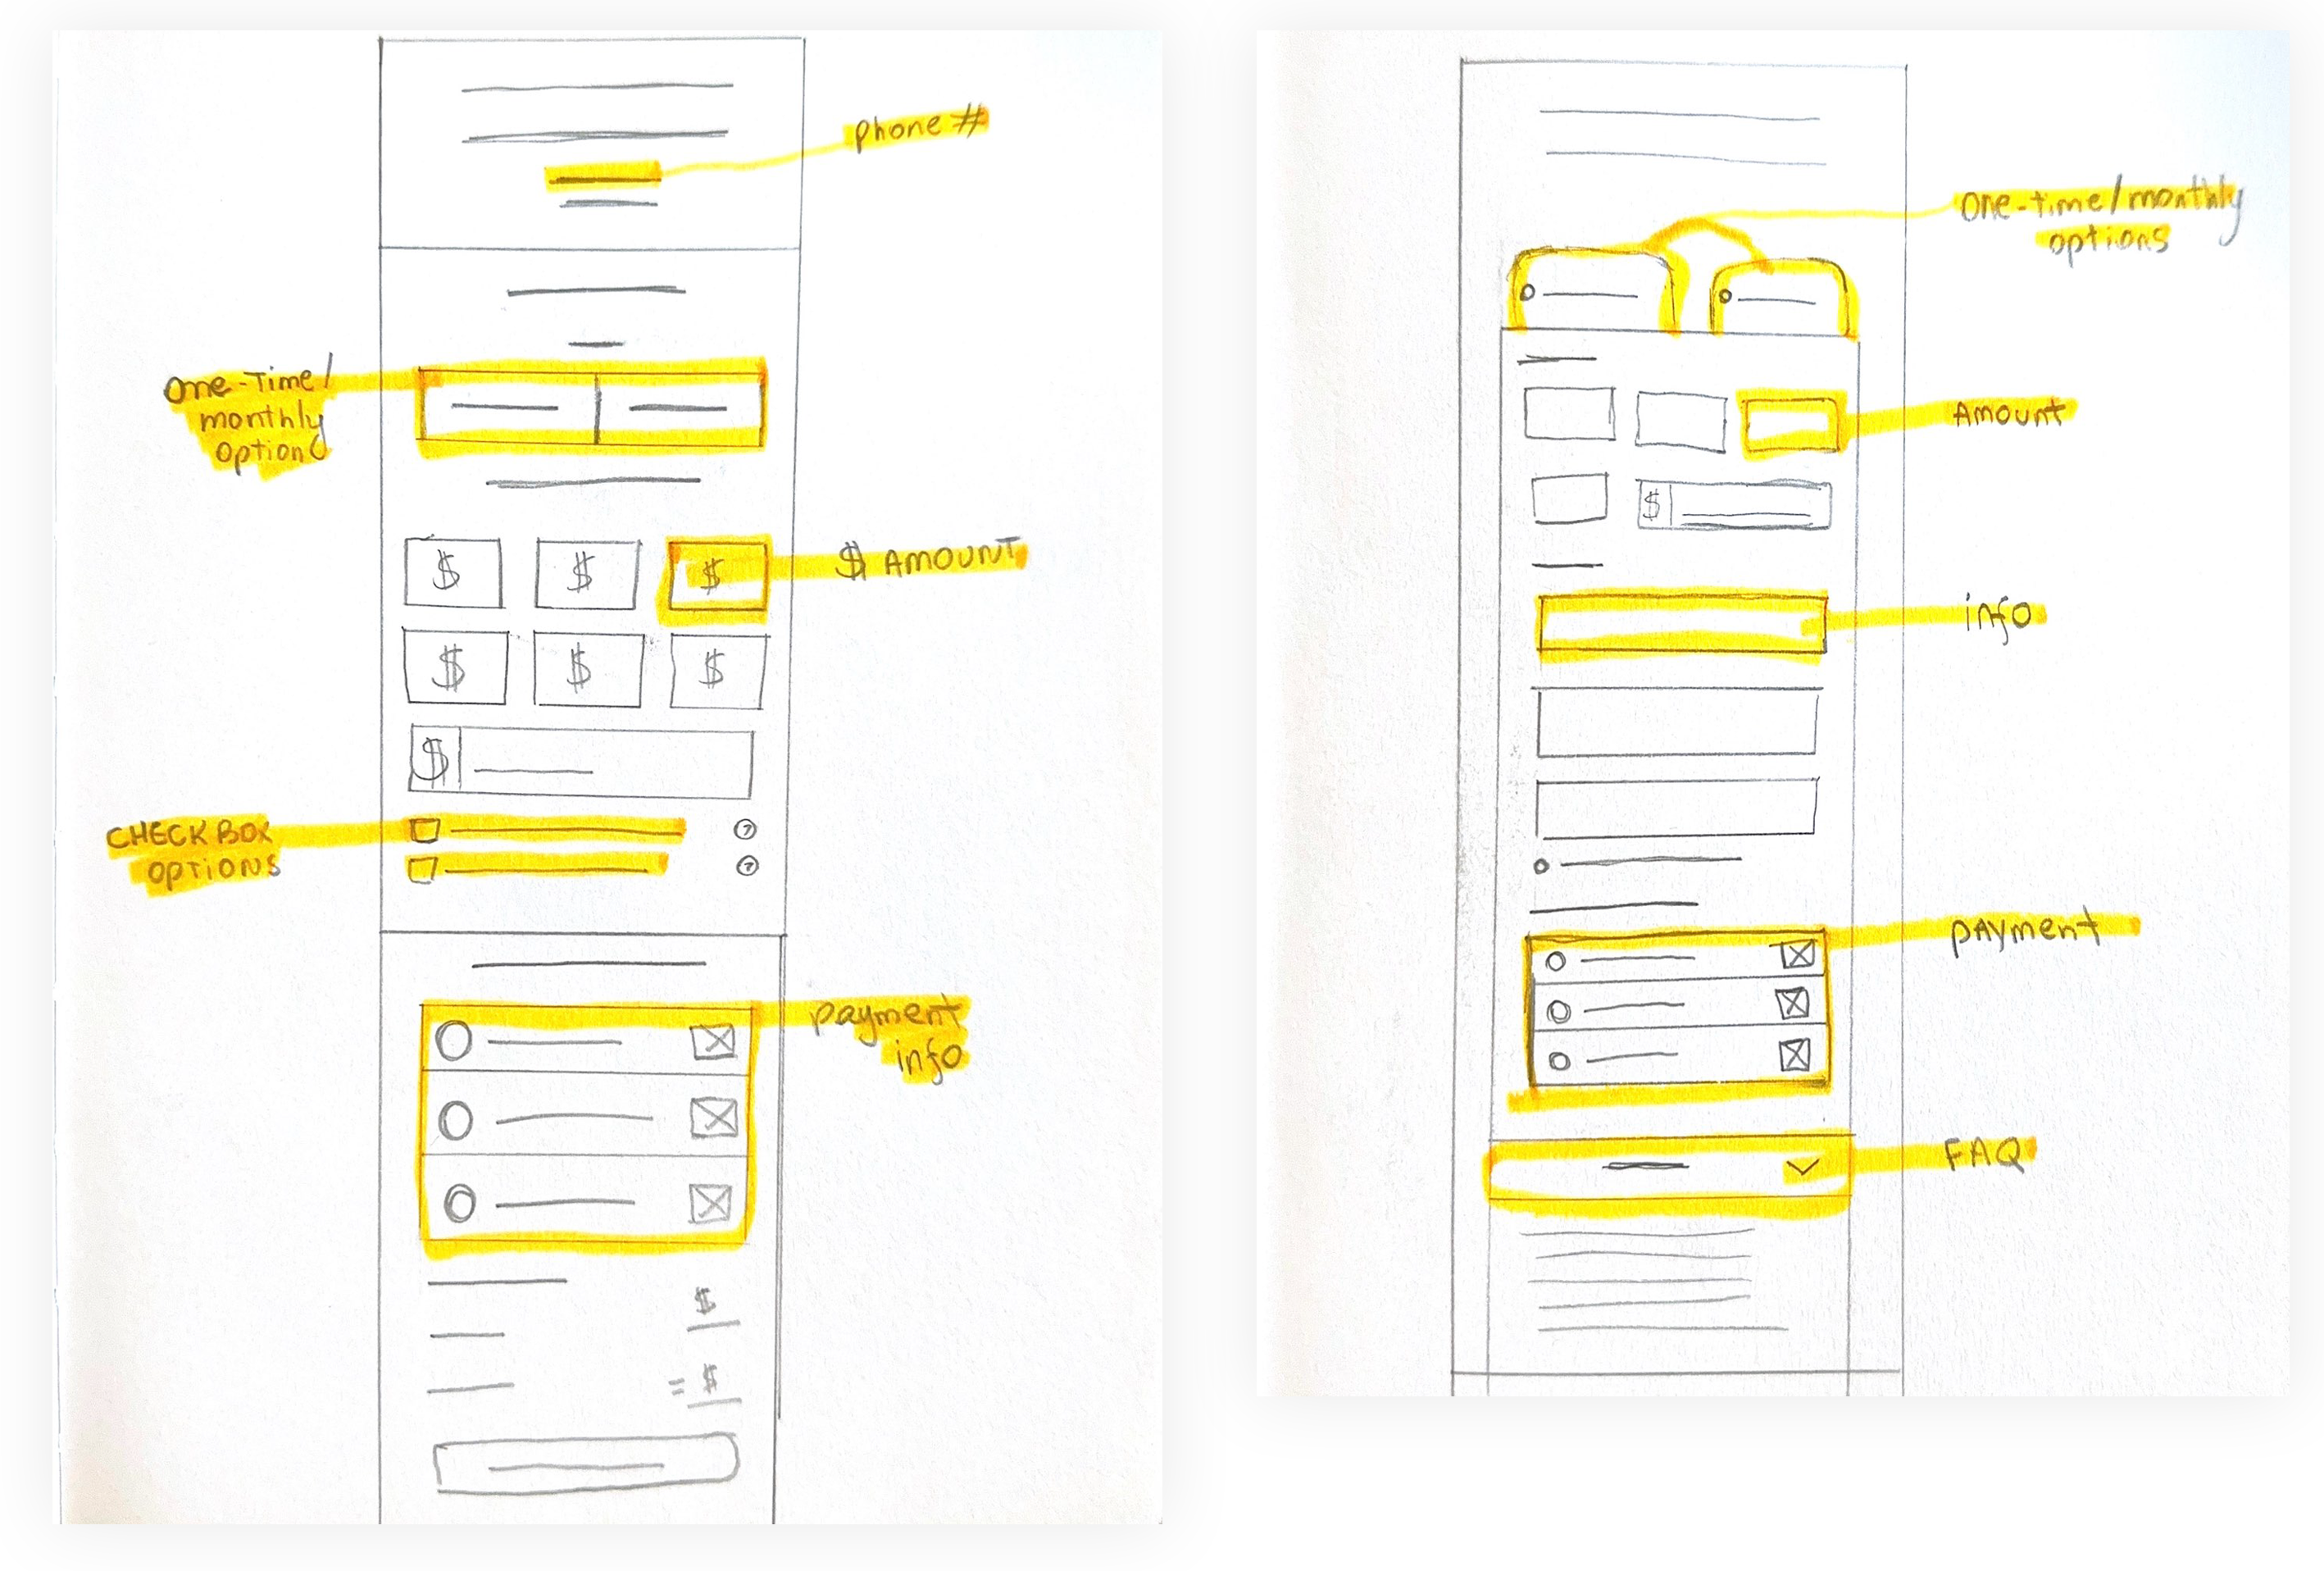 phone #
One-Time/
monthly
option
$ $ $
$ AMOUNT
$ $ $
$
CHECK BOX
OPTIONS
?
?
payment
info
$
= $
One-time/monthly
options
Amount
$
info
PAYment
FAQ